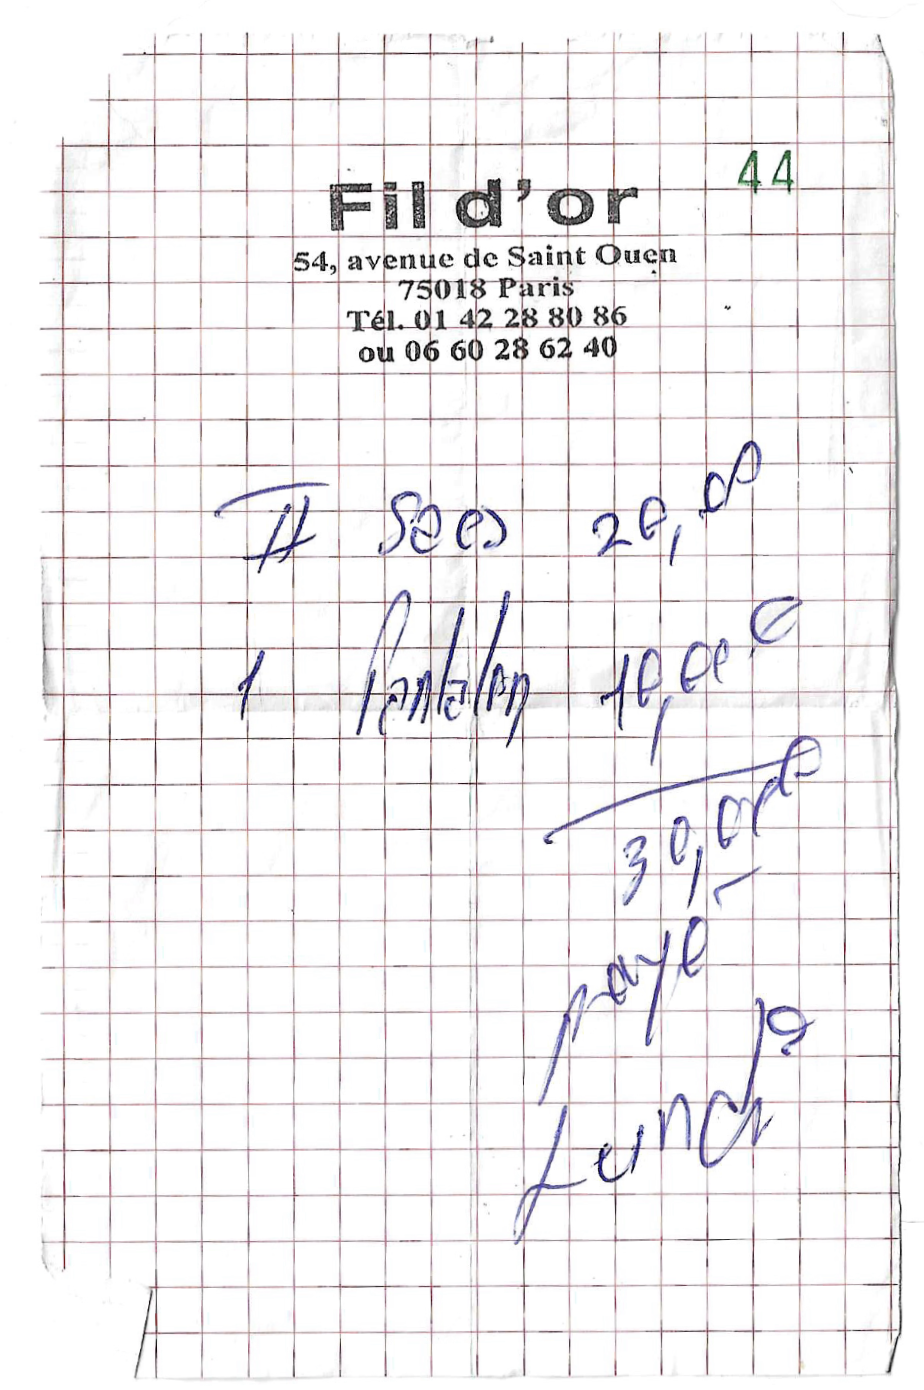 44
Fil d'or
54, avenue de Saint Ouen
75018 Paris
Tél. 01 42 28 80 86
ou 06 60 28 62 40
II Sacs 20,00
1 Pantalon 10,00 €
30,00
payé
Lundi